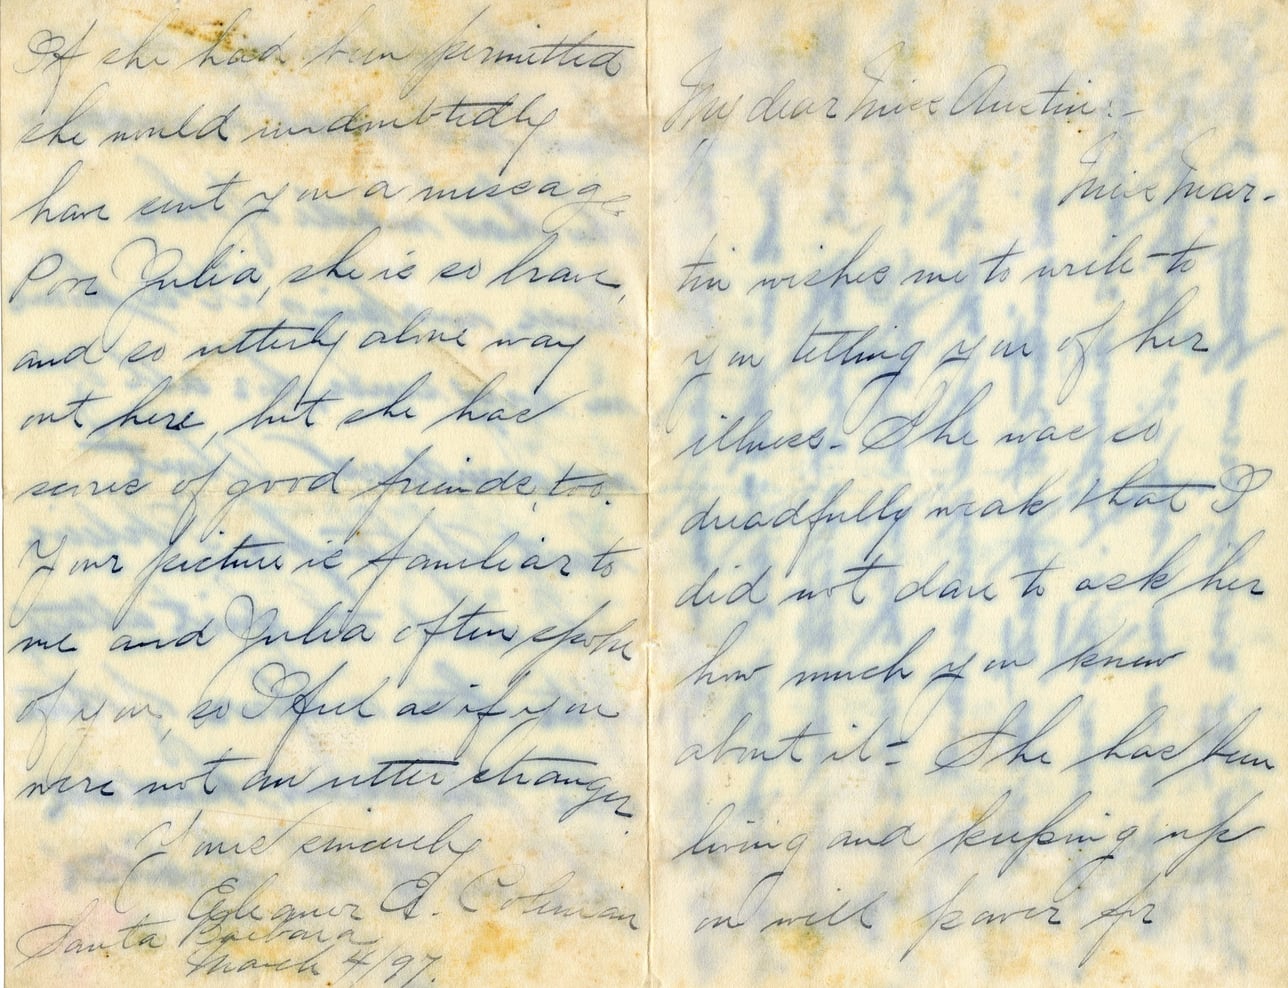 If she had been permitted
she would undoubtedly
have sent you a message.
Poor Julia, she is so brave,
and so utterly alone way
out here, but she has
scores of good friends, too.
Your picture is familiar to
me and Julia often spoke
of you, so I feel as if you
were not an utter stranger.
Yours sincerely
Eleanor E. Coleman
Santa Barbara
March 4/97.
My dear Miss Austin:-
Miss Mar-
tin wishes me to write to
you telling you of her
illness- She was so
dreadfully weak that I
did not dare to ask her
how much you knew
about it- She has been
living and keeping up
on will power for